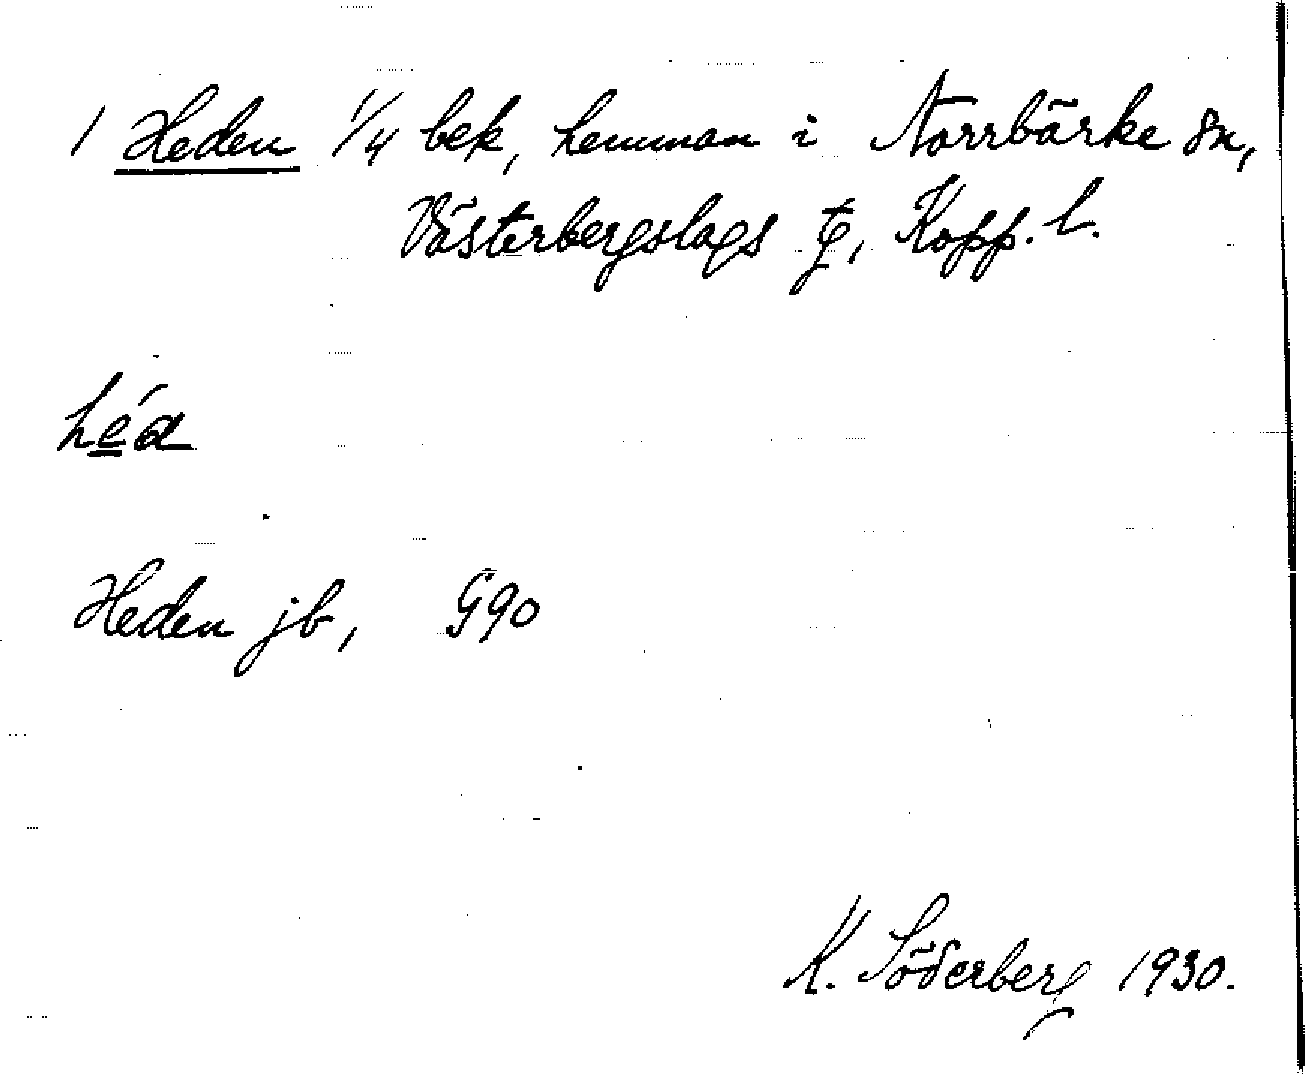 1 Heden 1/4 bek, hemman i Norrbärke sn,
Västerbergslags tg, Kopp. l.
héa
Heden jb, G90
K. Söderberg 1930.